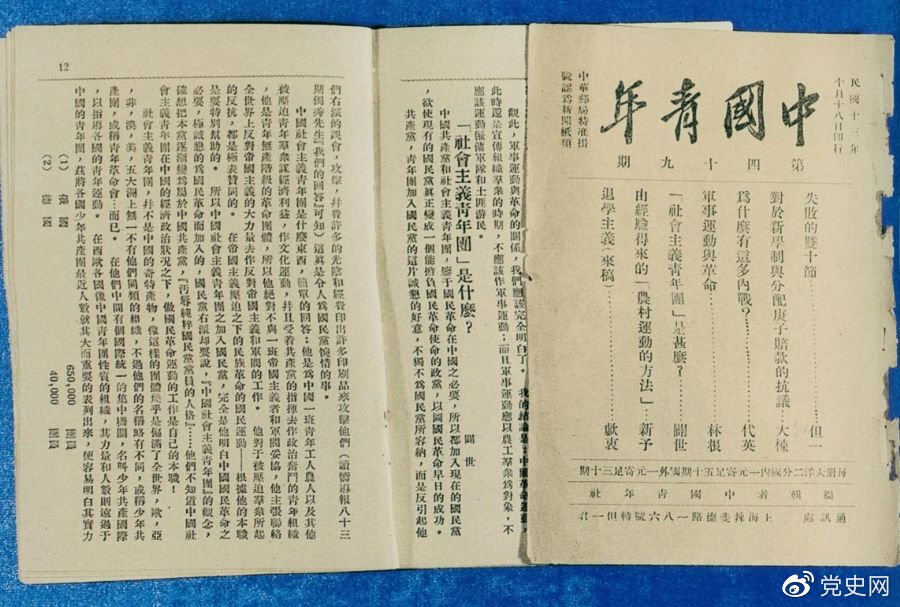 中國青年
民國十三年
十月十八日印行
中華郵局特准掛
號認爲新聞紙類
第四十九期
失敗的雙十節………但一
對於新學制與分配庚子賠款的抗議…大棟
爲什麼有這多內戰？………代英
軍事運動與革命………林根
「社會主義青年團」是甚麼？………闢世
由經驗得來的「農村運動的方法」…新予
退學主義（來稿）………獻衷
每册大洋二分國內一元寄足五十期國外一元寄足三十期
編輯者中國青年社
通訊處 上海辣斐德路一八六號轉但一君
觀此，軍事運動與革命的關係，我們應該完全明白了。我的結論是：中國革命運動，
此時還是宣傳組織羣衆的時期，不應該作軍事運動；而且軍事運動應以農工羣衆爲對象，不
應該運動僱傭軍隊和土匪游民。
「社會主義青年團」是什麼？
闢世
中國共產黨和社會主義青年團，鑒于國民革命在中國之必要，所以都加入現在的國民黨
，欲使現有的國民黨眞正變成一個能擔負國民革命使命的政黨，以圖國民革命早日的成功。
共產黨，青年團加入國民黨的這片誠懇的好意，不獨不爲國民黨所容納，而是反引起他
12
們右派的誤會，攻擊，幷費許多的光陰和經費印出許多印刷品來攻擊他們（讀嚮導報八十三
期獨秀先生『我們的回答』可知）這眞是令人爲國民黨惋惜的事。
中國社會主義青年團是什麼東西，簡單的回答：他是爲中國一班青年工人農人以及其他
被壓迫青年羣衆謀經濟利益，作文化運動，幷且受着共產黨的指揮去作政治奮鬥的青年組織
，他是青年無產階級的革命團體，所以他絕對不與一班帝國主義者和軍閥妥協，他主張聯絡
全世界上反對帝國主義的大力量去作反對帝國主義和軍閥的工作。他對于被壓迫羣衆所起
的反抗，都是極表贊同的。在帝國主義壓迫之下的民族革命的國民運動——根據他的本職
是要特別幫助的。所以中國社會主義青年團之加入國民黨，完全是他明白中國國民革命之
必要，極誠懇的爲國民革命而加入的，國民黨右派却要說，『中國社會主義青年團』的觀念，
確想把本黨逐漸變爲屬於中國共產黨，『汚辱純粹國民黨黨員的人格』……他們不知道中國社
會主義青年團在中國的經濟政治狀况之下，做國民革命運動的工作是自己的本職！
社會主義青年團，幷不是中國的奇特產物，像這樣的團體幾乎是偏滿了全世界，歐，亞
，非，澳，美，五大洲上無一不有他們同類的組織，不過他們的名稱略有不同，或稱少年共
產團，或稱青年革命會…而已。在他們中間有個國際統一的集中機關，名呌少年共產國際
，以指導各國的青年運動。在西歐各國像中國青年團性質的組織，其力量和人數則遠過于
中國的青年團，茲將各國少年共產團最近人數就其大而重要的表列出來，便容易明白其實力
(1) 650,000
(2) 40,000
党史网